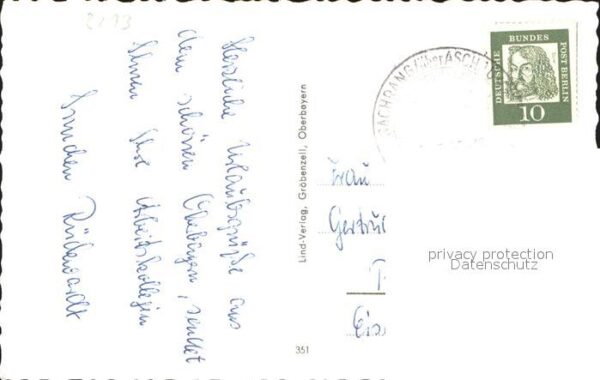 2213
Herzliche Urlaubsgrüße aus
dem schönen Oberbayern, sendet
Ihnen Ihre Arbeitskollegin
Lind-Verlag, Gröbenzell, Oberbayern
351
SACHRANG über ASCHAU
DEUTSCHE BUNDES POST BERLIN
10
Frau
Gertru
Eis
privacy protection
Datenschutz